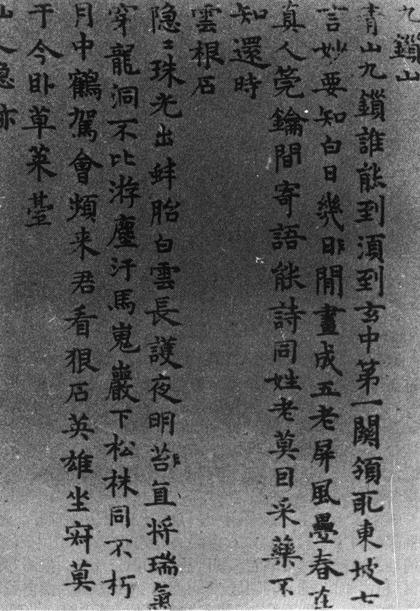 九鎖山
青山九鎖誰能到須到玄中第一關領取東坡七
言妙要知白日幾時閒畫成五老屏風疊春在
真人莞鑰間寄語能詩同姓老莫因采藥不
知還時
雲根石
隐〻珠光出蚌胎白雲長護夜明苔直将瑞氣
穿龍洞不比游塵汗馬嵬巖下松株同不朽
月中鶴駕會頻来君看狠石英雄坐寂莫
于今卧草萊